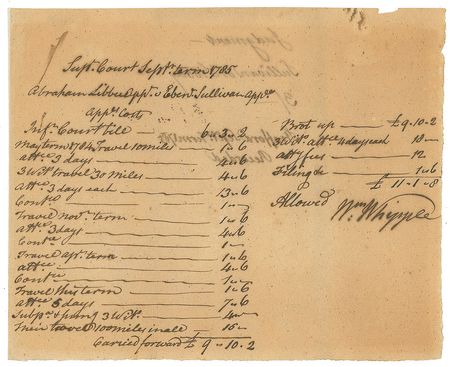 Supr. Court Septr. term 1785
Abraham Libbee Appt. v Ebenr. Sullivan Appee
Appees Costs
Inf. Court bill 6-3-2
May term 1784 Travel 10 miles 1-6
attce 3 days 4-6
3 Wit. travel 30 miles 4-6
attce 3 days each 13-6
Contce 1-
Travel novr. term 1-
attce 3 days 4-6
Contce 1-
Travel apr. term 1-
attce 4-6
Contce 1-
Travel this term 1-6
attce 5 days 7-6
Subpa & 3 Wit. 4-
Their travel 100 miles in all 16-
Carried forward £ 9-10-2
Brot up £9-10-2
3 Wit. attce 4 days each 18-
atty fees 12
Filing &c 1-6
£ 11-1-8
Allowed
Wm. Whipple